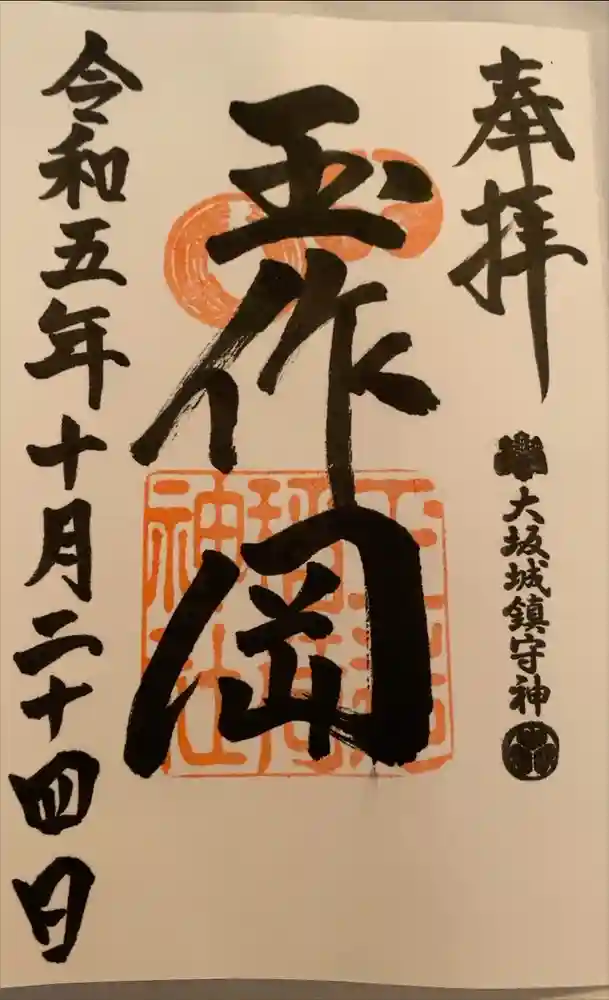 奉拝
大坂城鎮守神
玉作岡
玉造
稲荷
神社
令和五年十月二十四日